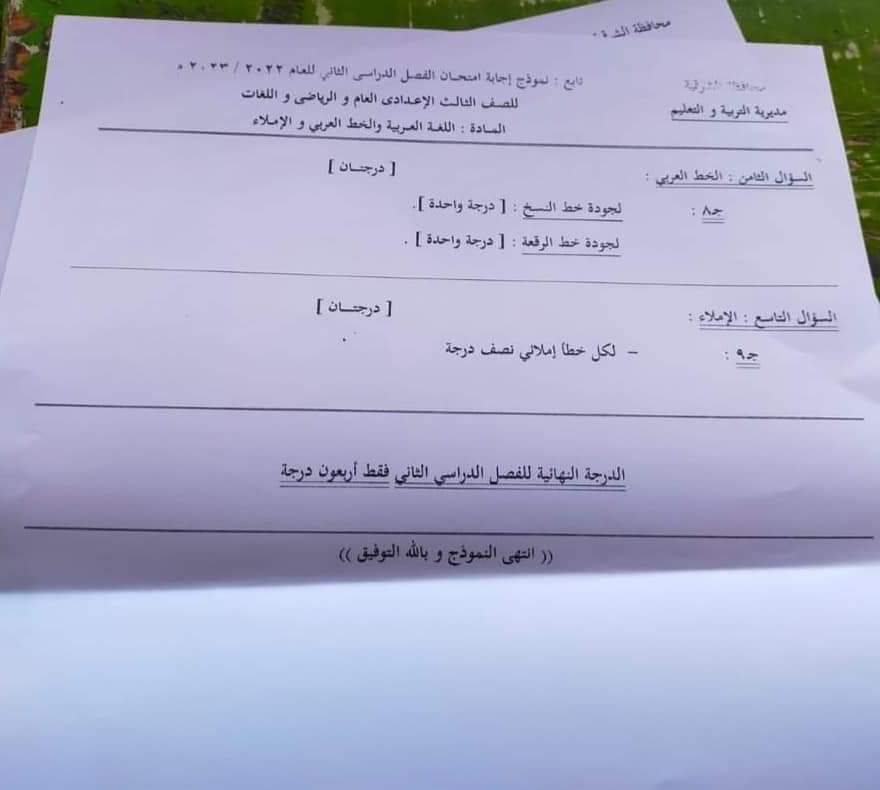 محافظة الشرقية
محافظة الشرقية
مديرية التربية و التعليم
تابع : نموذج إجابة امتحــان الفصل الدراسى الثاني للعام ٢٠٢٢ / ٢٠٢٣ م
للصف الثالث الإعدادى العام و الرياضى و اللغات
المــادة : اللغـة العــربية والخط العربي و الإمـلاء
السـؤال الثامن : الخط العربي : [ درجتــان ]
جـ٨ : لجودة خط النســخ : [ درجة واحدة ] .
لجودة خط الرقعة : [ درجة واحدة ] .
السـؤال التاسـع : الإملاء : [ درجتــان ]
جـ٩ : – لكل خطأ إملائي نصف درجة
الدرجة النهائية للفصل الدراسي الثاني فقط أربعون درجة
(( انتهى النموذج و بالله التوفيق ))